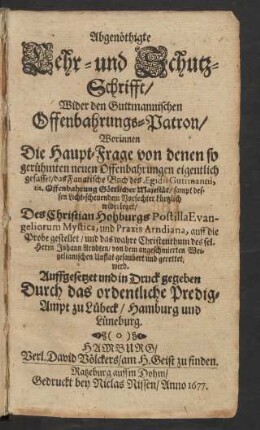 Abgenöthigte
Lehr- und Schutz-
Schrifft/
Wider den Guttmannischen
Offenbahrungs-Patron/
Worinnen
Die Haupt-Frage von denen so
gerühmten neuen Offenbahrungen eigentlich
gefasset/ das Fanatische Buch des Ægidii Gutmanni,
tit. Offenbahrung Göttlicher Majestät/ sampt des-
sen Licht-scheuendem Verfechter kürtzlich
widerleget/
Des Christian Hohburgs Postilla Evan-
geliorum Mystica, und Praxis Arndiana, auff die
Probe gestellet/ und das wahre Christenthum des sel.
Herrn Johann Arndten/ von dem angeschmierten Wei-
gelianischen Unflat gesaubert und gerettet,
wird.
Auffgesetzet und in Druck gegeben
Durch das ordentliche Predig-
Ampt zu Lübeck/ Hamburg und
Lüneburg.
(o)
HAMBURG/
Verl. David Völckers/ am H. Geist zu finden.
Ratzeburg auffm Dohm/
Gedruckt bey Niclas Nissen/ Anno 1677.